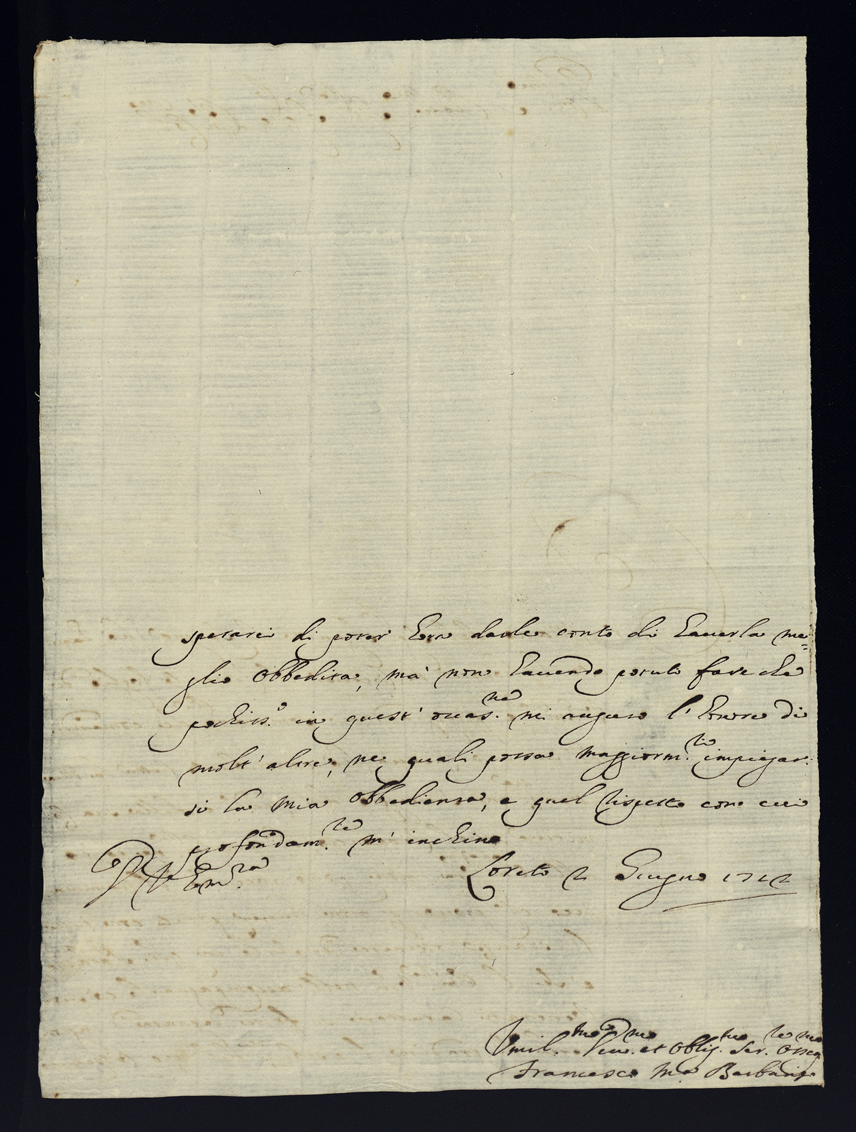 sperarei di poter hora darle conto di hauerla me=
glio obbedita, mà non hauendo potuto fare che
pochiss.o in quest' occas.ne mi auguro l' honore di
molt' altre, ne quali possa maggiorm.te impiegar-
si la mia obbedienza, e quel rispetto con cui
profondam.te m' inchino
Em.za
Loreto 2 Giugno
Umil.mo et Oblig.mo Ser.
Francesco M.a